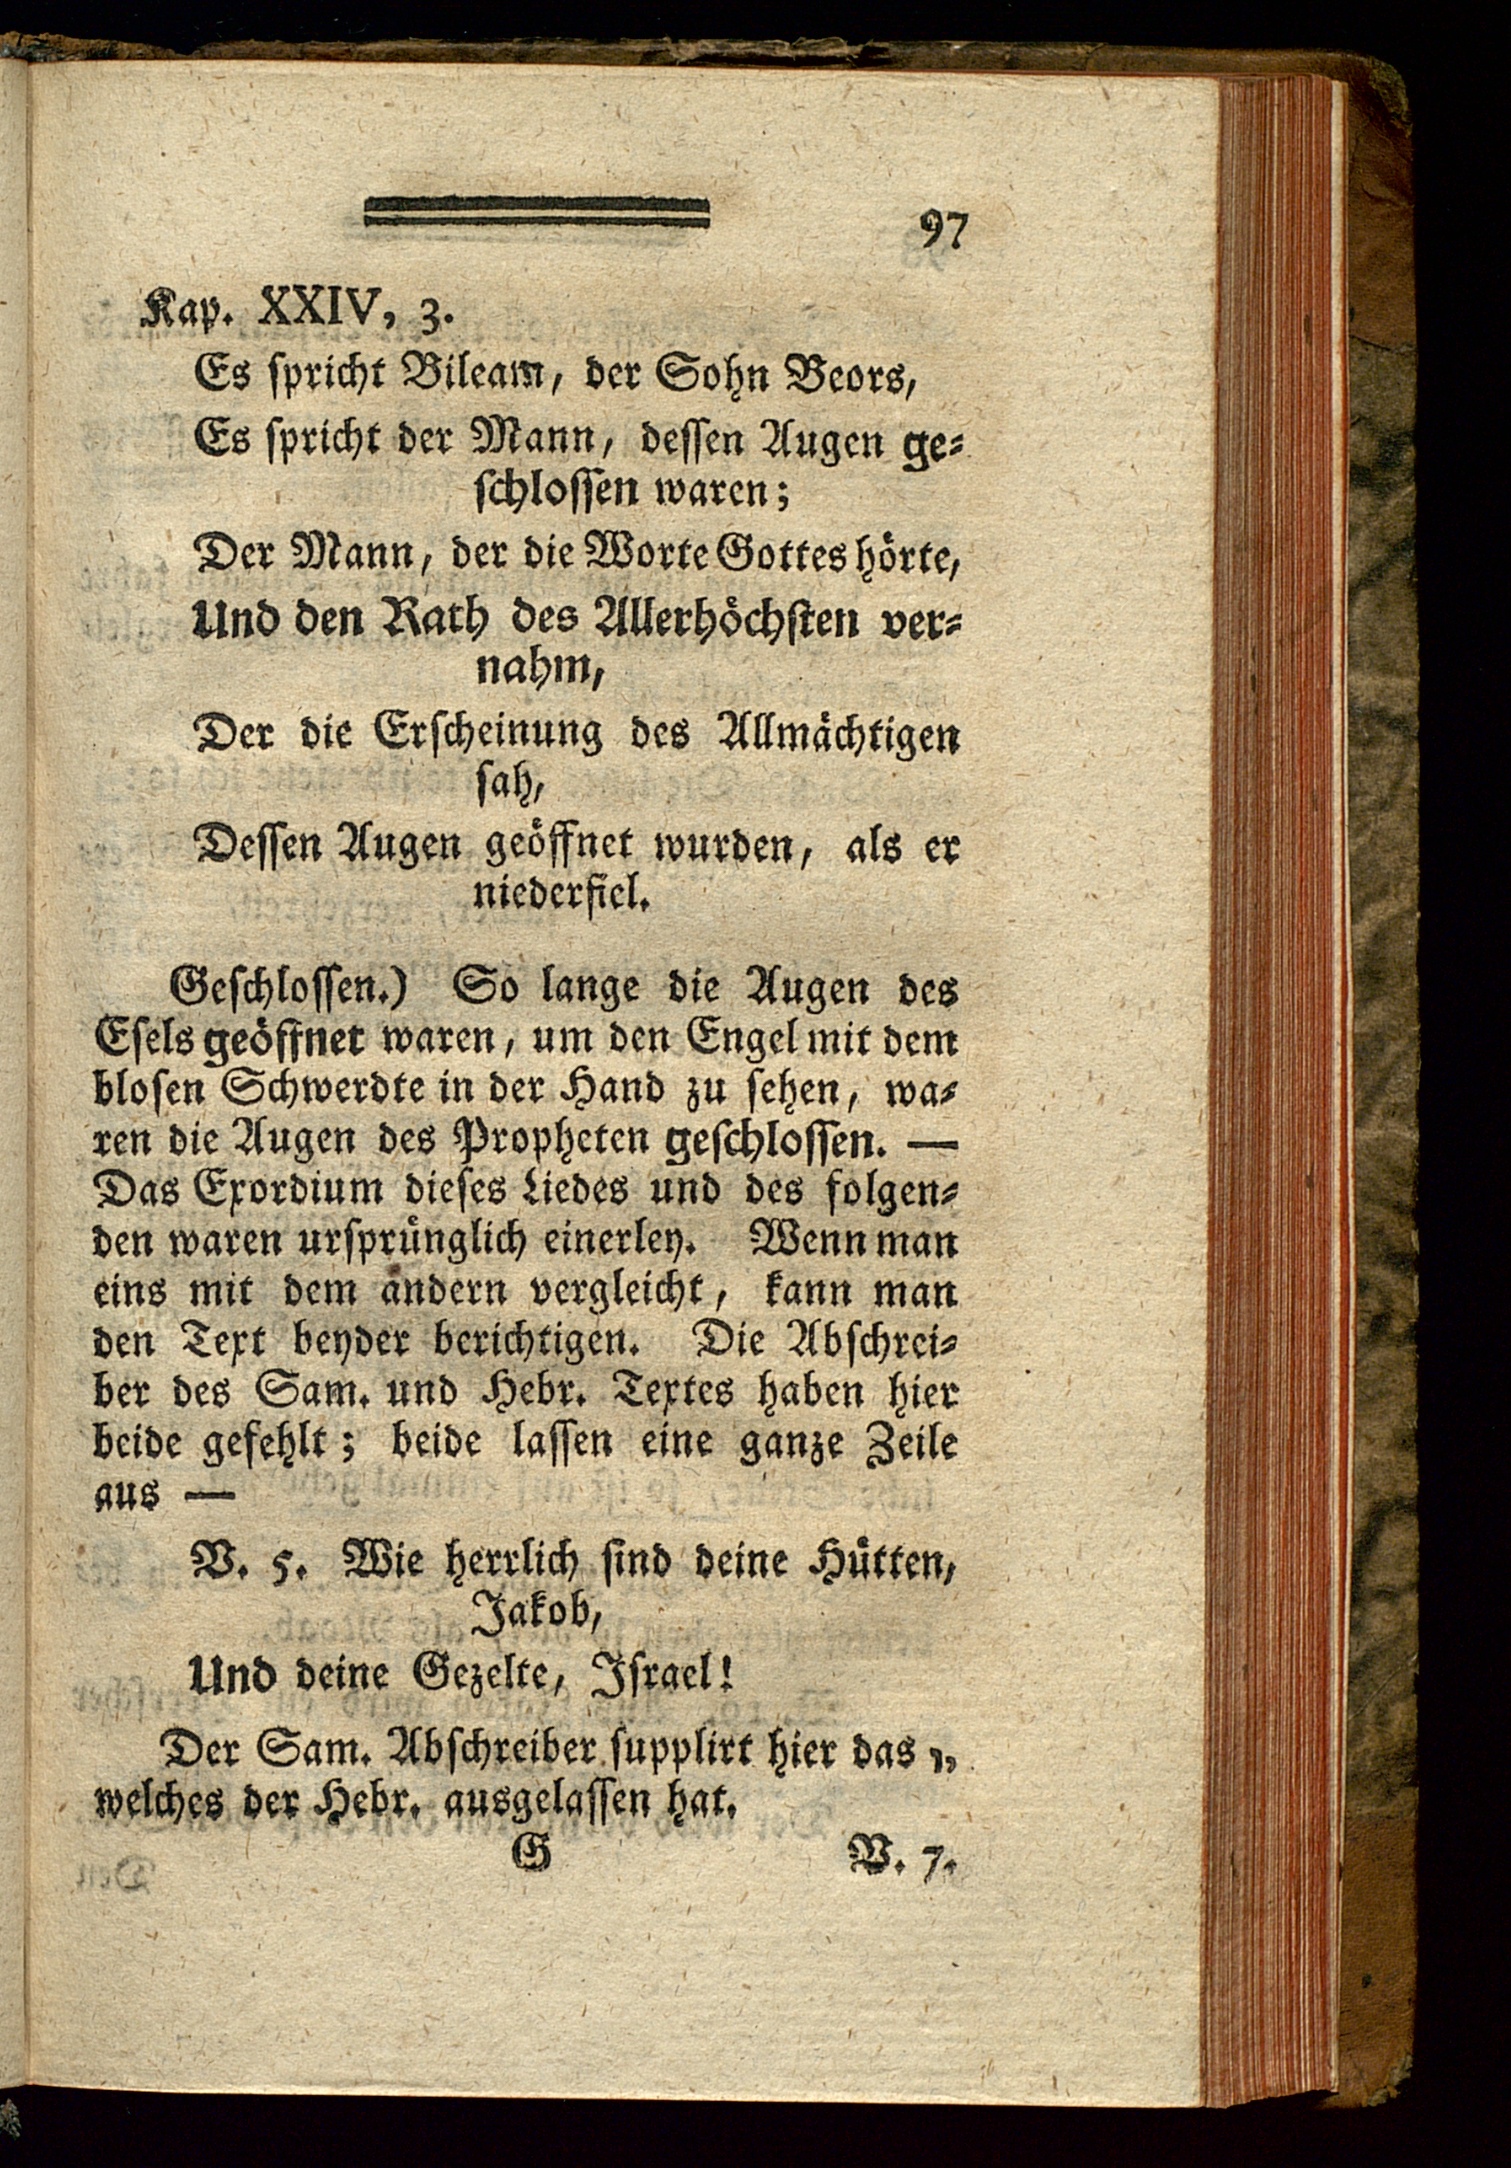 97
Kap. XXIV, 3.
Es spricht Bileam, der Sohn Beors,
Es spricht der Mann, dessen Augen ge-
schlossen waren;
Der Mann, der die Worte Gottes hörte,
Und den Rath des Allerhöchsten ver-
nahm,
Der die Erscheinung des Allmächtigen
sah,
Dessen Augen geöffnet wurden, als er
niederfiel.
Geschlossen.) So lange die Augen des
Esels geöffnet waren, um den Engel mit dem
blosen Schwerdte in der Hand zu sehen, wa-
ren die Augen des Propheten geschlossen. —
Das Exordium dieses Liedes und des folgen-
den waren ursprünglich einerley. Wenn man
eins mit dem andern vergleicht, kann man
den Text beyder berichtigen. Die Abschrei-
ber des Sam. und Hebr. Textes haben hier
beide gefehlt; beide lassen eine ganze Zeile
aus —
V. 5. Wie herrlich sind deine Hütten,
Jakob,
Und deine Gezelte, Israel!
Der Sam. Abschreiber supplirt hier das ו,
welches der Hebr. ausgelassen hat.
G V. 7.